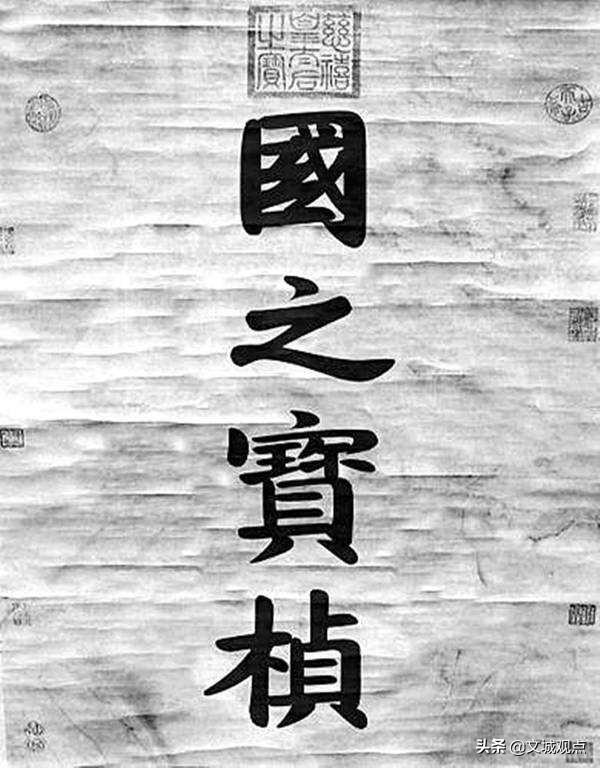 慈禧
皇太后
之寶
國之寶楨
头条 @文城观点